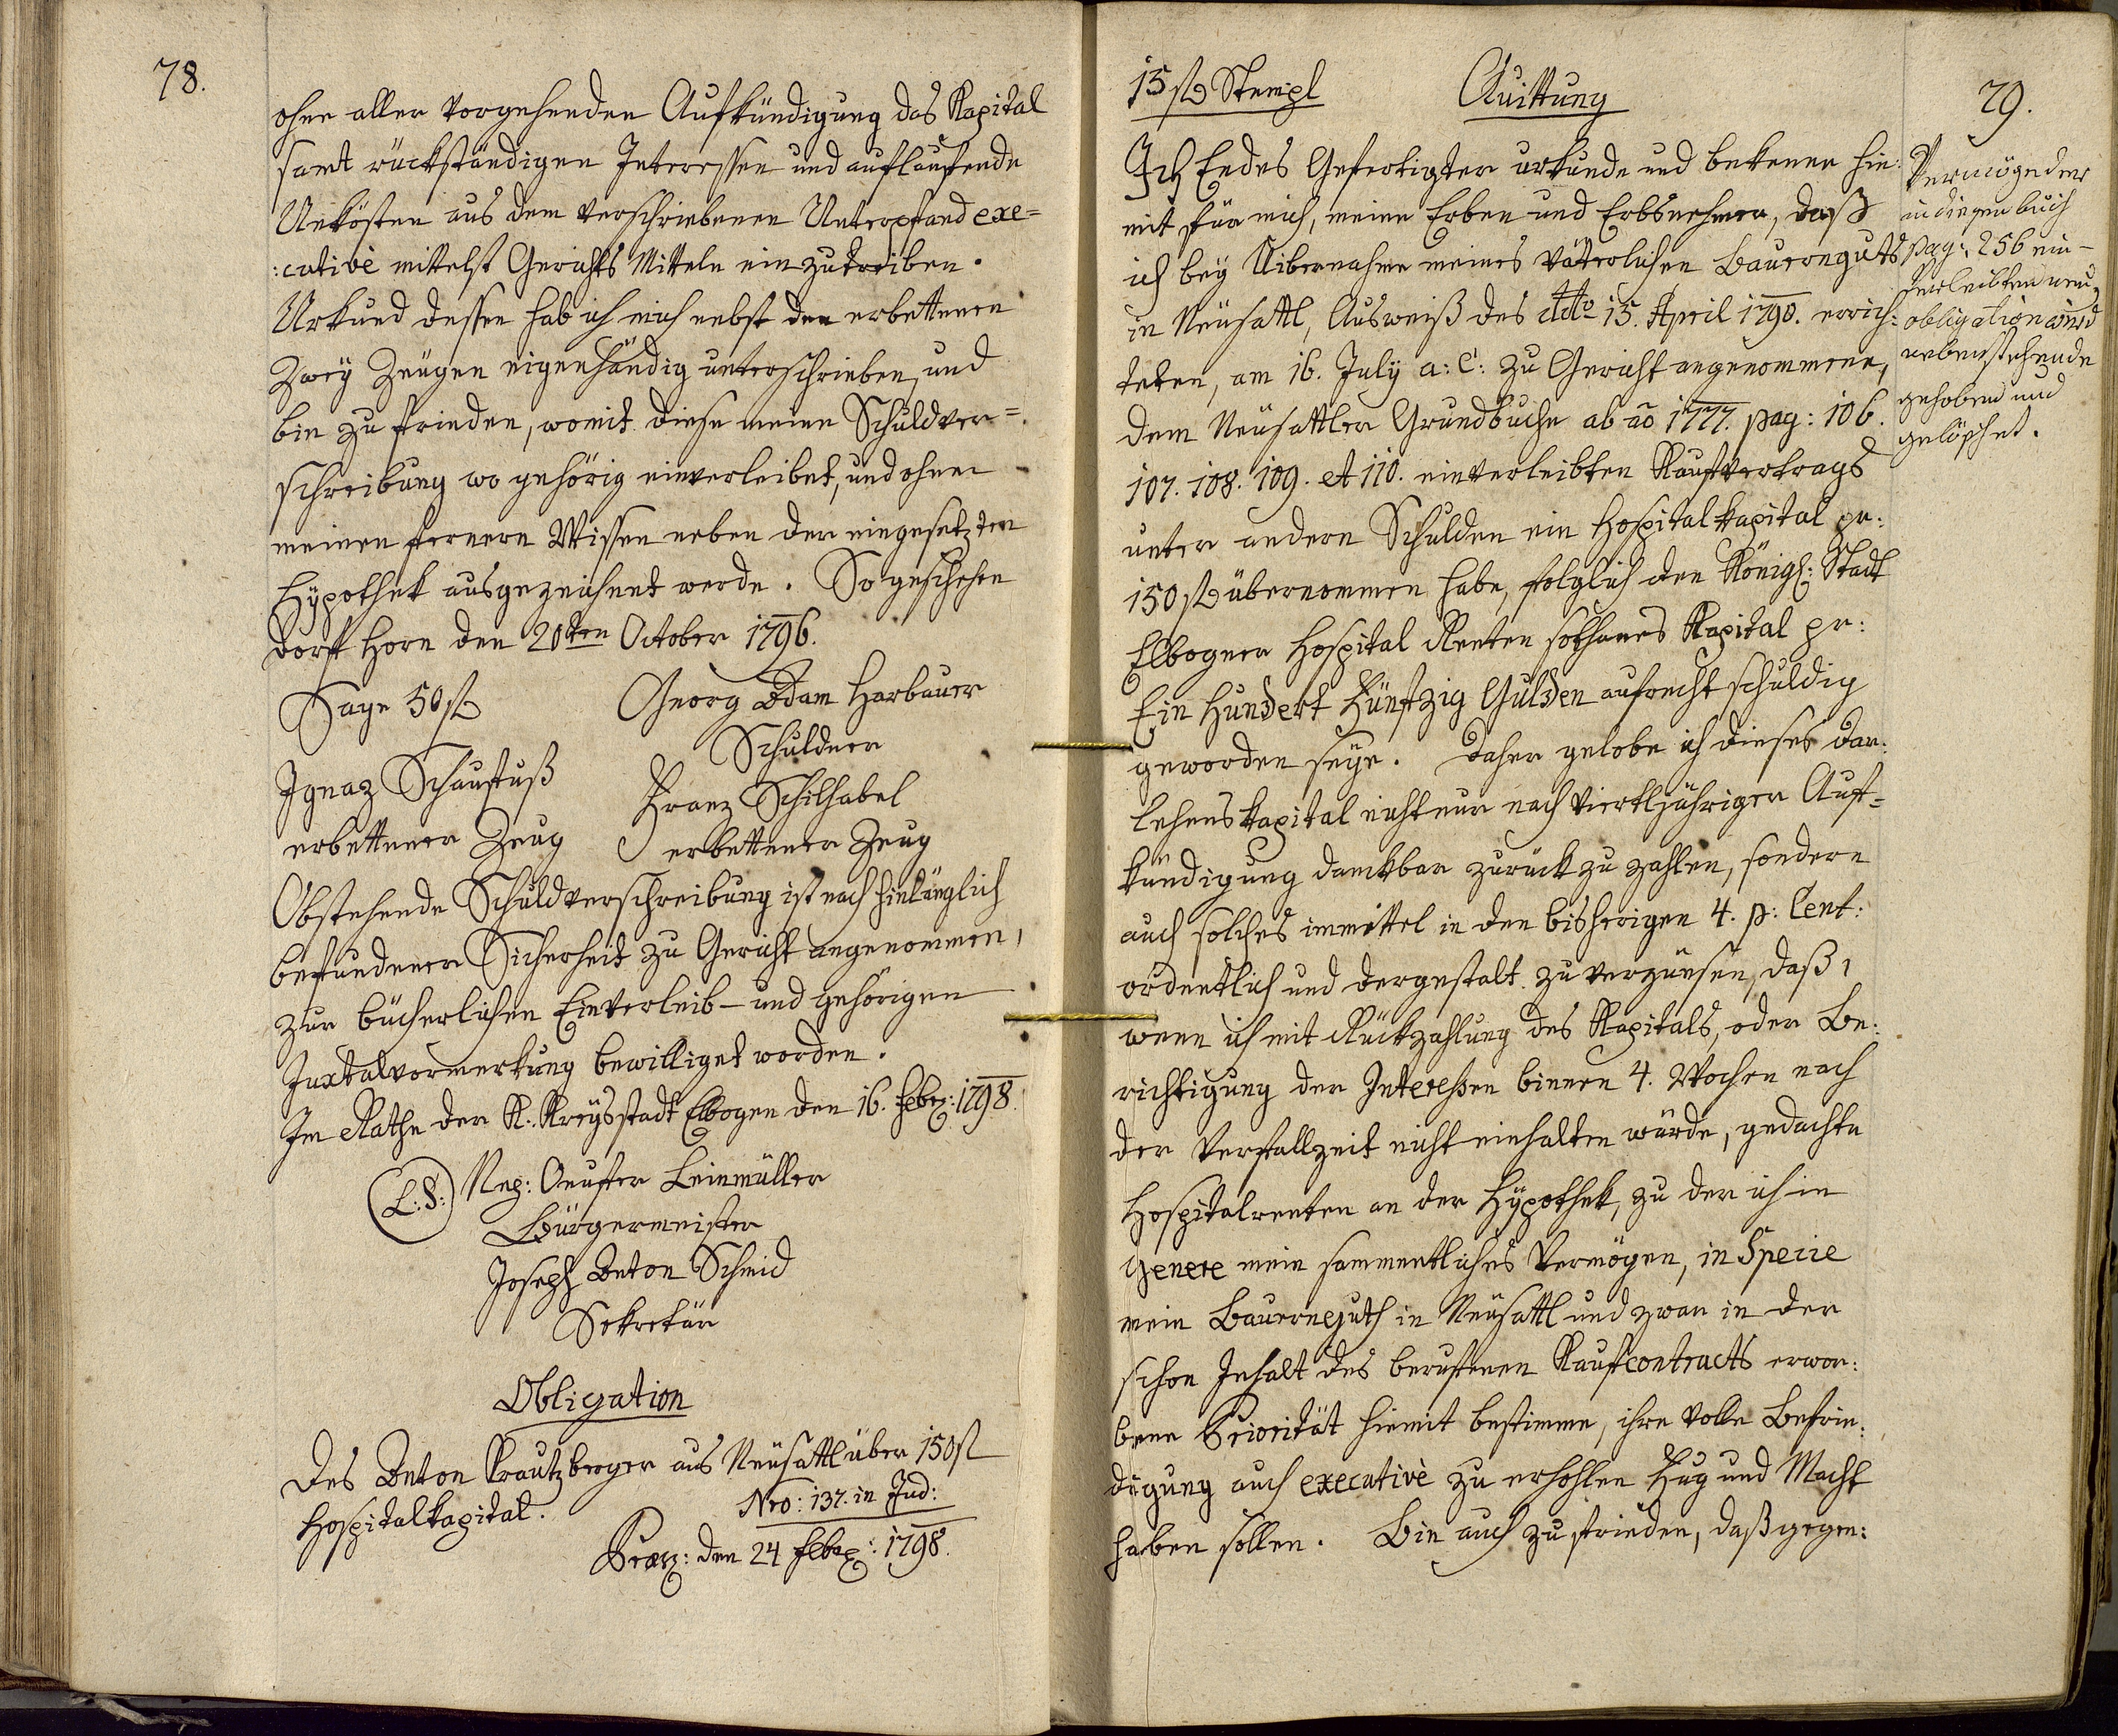 78.
ohne aller vorgehenden Aufkündigung das Kapital
samt rückständigen Interessen und auflaufende
Unkösten aus dem verschriebenen Unterpfand exe=
:cutivè mittelst Gerichts Mitteln einzutreiben.
Urkund dessen hab ich mich nebst den erbettenen
Zwey Zeügen eigenhändig unterschrieben, und
bin zu frieden, womit diese meine Schuldver=
schreibung wo gehörig einverleibet, und ohne
meinen fernern Wissen neben der eingesetzten
Hÿpothek ausgezeichnet werde. So geschehen
Dorf Horn den 20ten October 1796.
Sage 50 f
Georg Adam Harbauer
Schuldner
Ignaz Schaufuß
erbettener Zeug
Franz Schilhabel
erbettener Zeug
Obstehende Schuldverschreibung ist nach hinlänglich
befundener Sicherheit zu Gericht angenommen,
zur bücherlichen Einverleib- und gehörigen
Juxtalvormerkung bewilliget worden.
Im Rathe der K. Kreysstadt Elbogen den 16. Febr: 1798.
(L:S:) Leinmüller
Bürgermeister
Joseph Anton Schmid
Sekretär
Obligation
Des Anton Krautzberger aus Neusattl über 150 f
Hospitalkapital.
Nro: 137. in Jud:
Præs: den 24 Febr: 1798.
15 f Stempl
Quittung
79.
Ich Endes Gefertigter urkunde und bekenne hie:
mit für mich, meine Erben und Erbsnehmer, daß
ich beÿ Uibernahme meines väterlichen Bauernguts
in Neüsattl, Ausweiß des ddto 15. April 1790. errich:
teten, am 16. Julÿ a: c: zu Gericht angenommene,
dem Neüsattler Grundbuche ab ao 1777. pag: 106.
107. 108. 109. et 110. einverleibten Kaufvertrags
unter andern Schulden ein Hospitalkapital pr:
150 f übernommen habe, folglich den Königl: Stadt
Elbogner Hospital Renten sothanes Kapital pr:
Ein Hundert Fünfzig Gulden aufrecht schuldig
geworden seÿe. Daher gelobe ich dieses Dar:
lehenskapital nicht nur nach viertljähriger Auf=
kündigung danckbar zurück zu zahlen, sondern
auch solches immittel in den bisherigen 4. p: Cent:
ordentlich und dergestalt zu verzünsen, daß,
wenn ich mit Rückzahlung des Kapitals, oder Be:
richtigung der Interessen binnen 4. Wochen nach
der Verfallzeit nicht einhalten würde, gedachte
Hospitalrenten an der Hÿpothek, zu der ich in
Genere mein sammentliches Vermögen, in Specie
mein Bauernguth in Neüsattl und zwar in der
schon Inhalt des berufenen Kaufcontracts erwor:
bene Priorität hiemit bestimme, ihre volle Befrie:
digung auch executivè zu erhohlen Fug und Macht
haben sollen. Bin auch zu frieden, daß gegen:
Vermög der
in diesen buch
pag: 256 ein-
verleibten neu
obligation wird
nebenstehende
gehoben und
gelöschet.